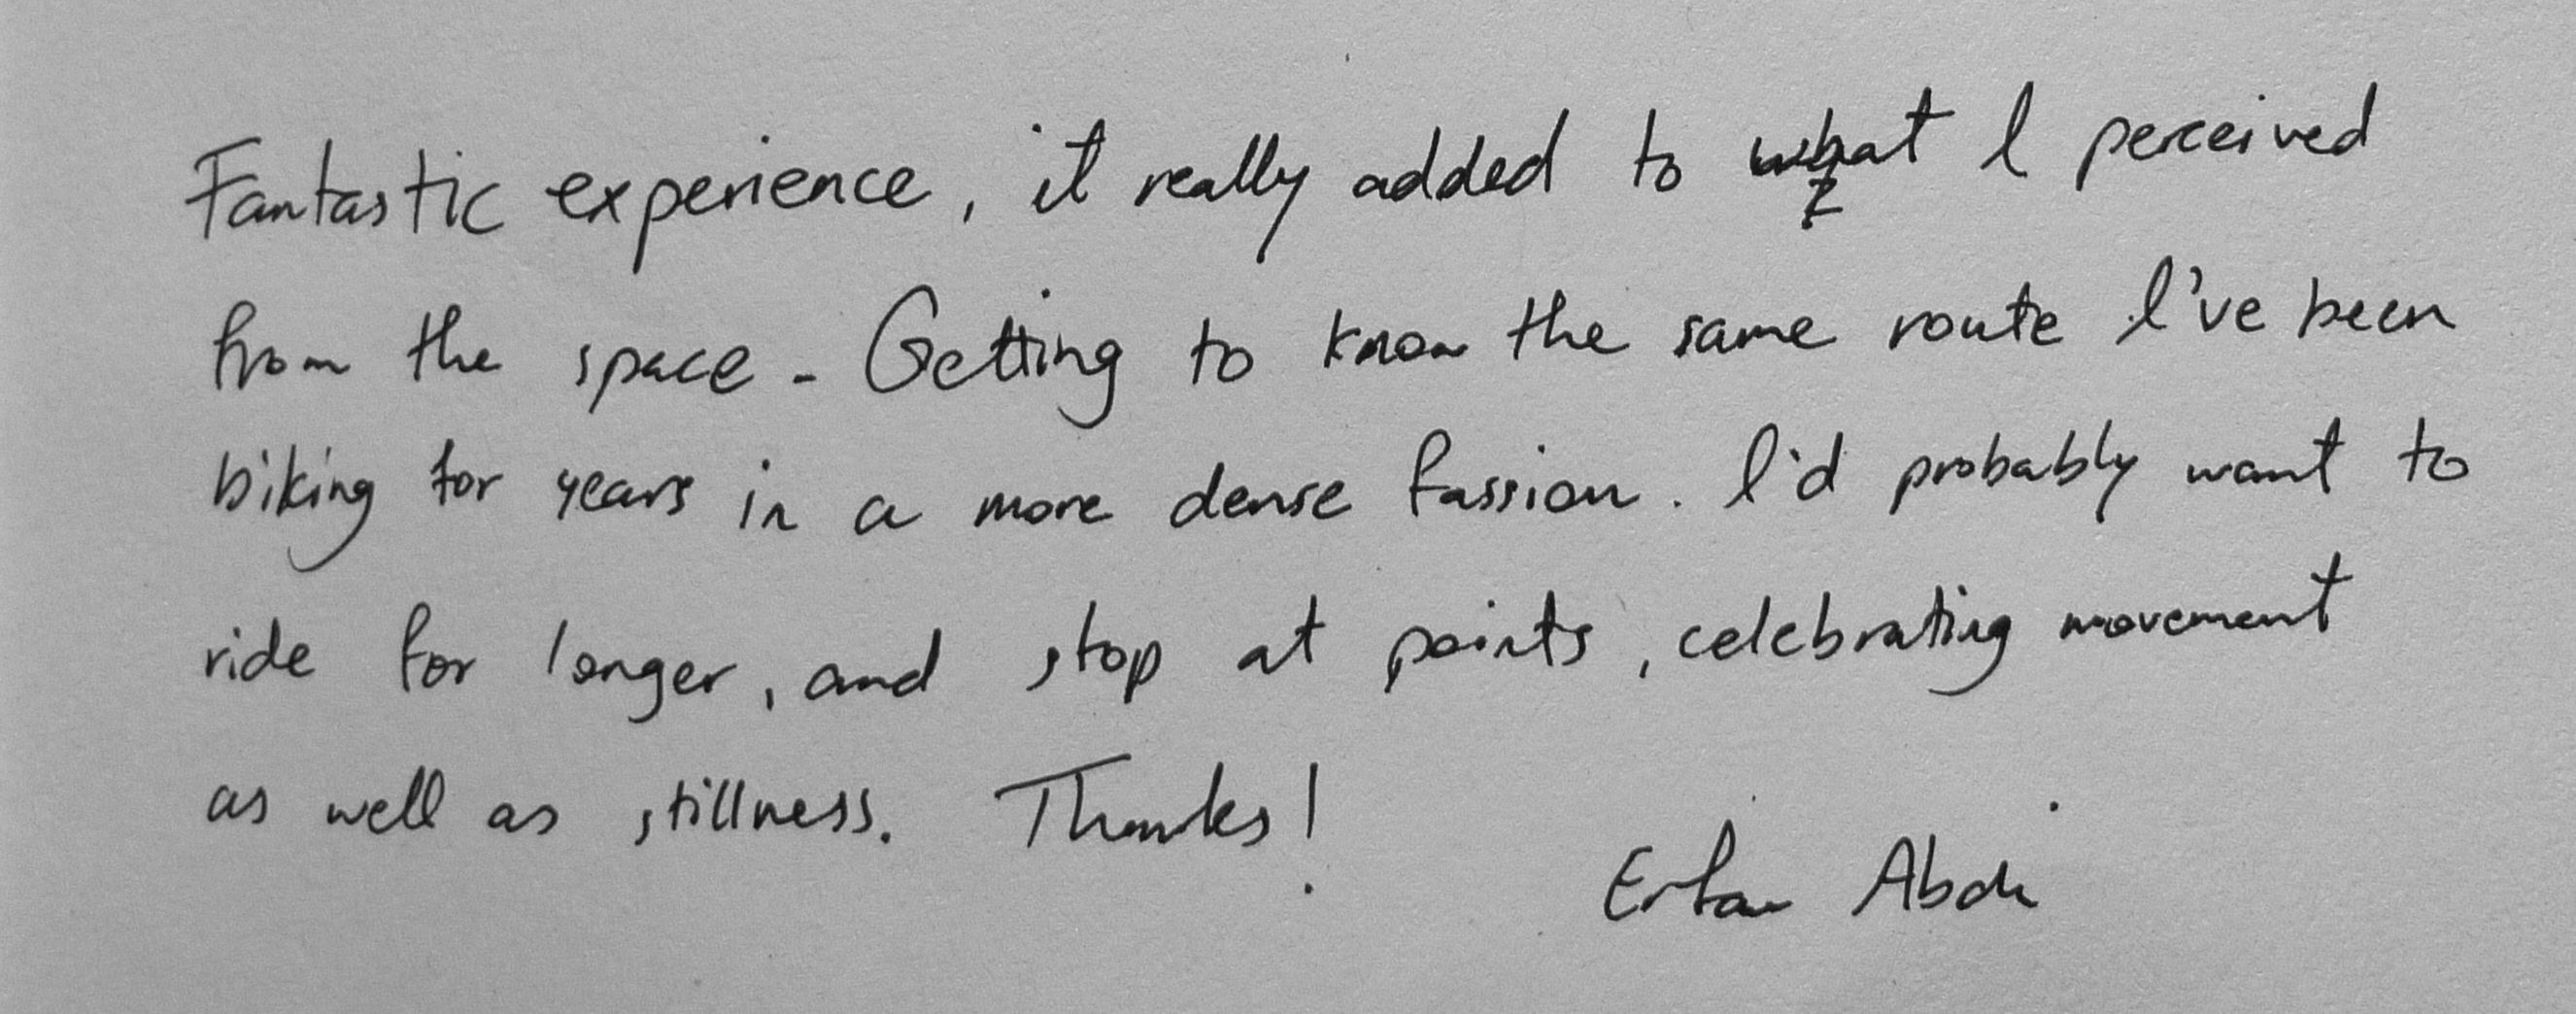 Fantastic experience, it really added to what I perceived
from the space. Getting to know the same route I've been
biking for years in a more dense fassion. I'd probably want to
ride for longer, and stop at points, celebrating movement
as well as stillness. Thanks!
Erfan Abdi